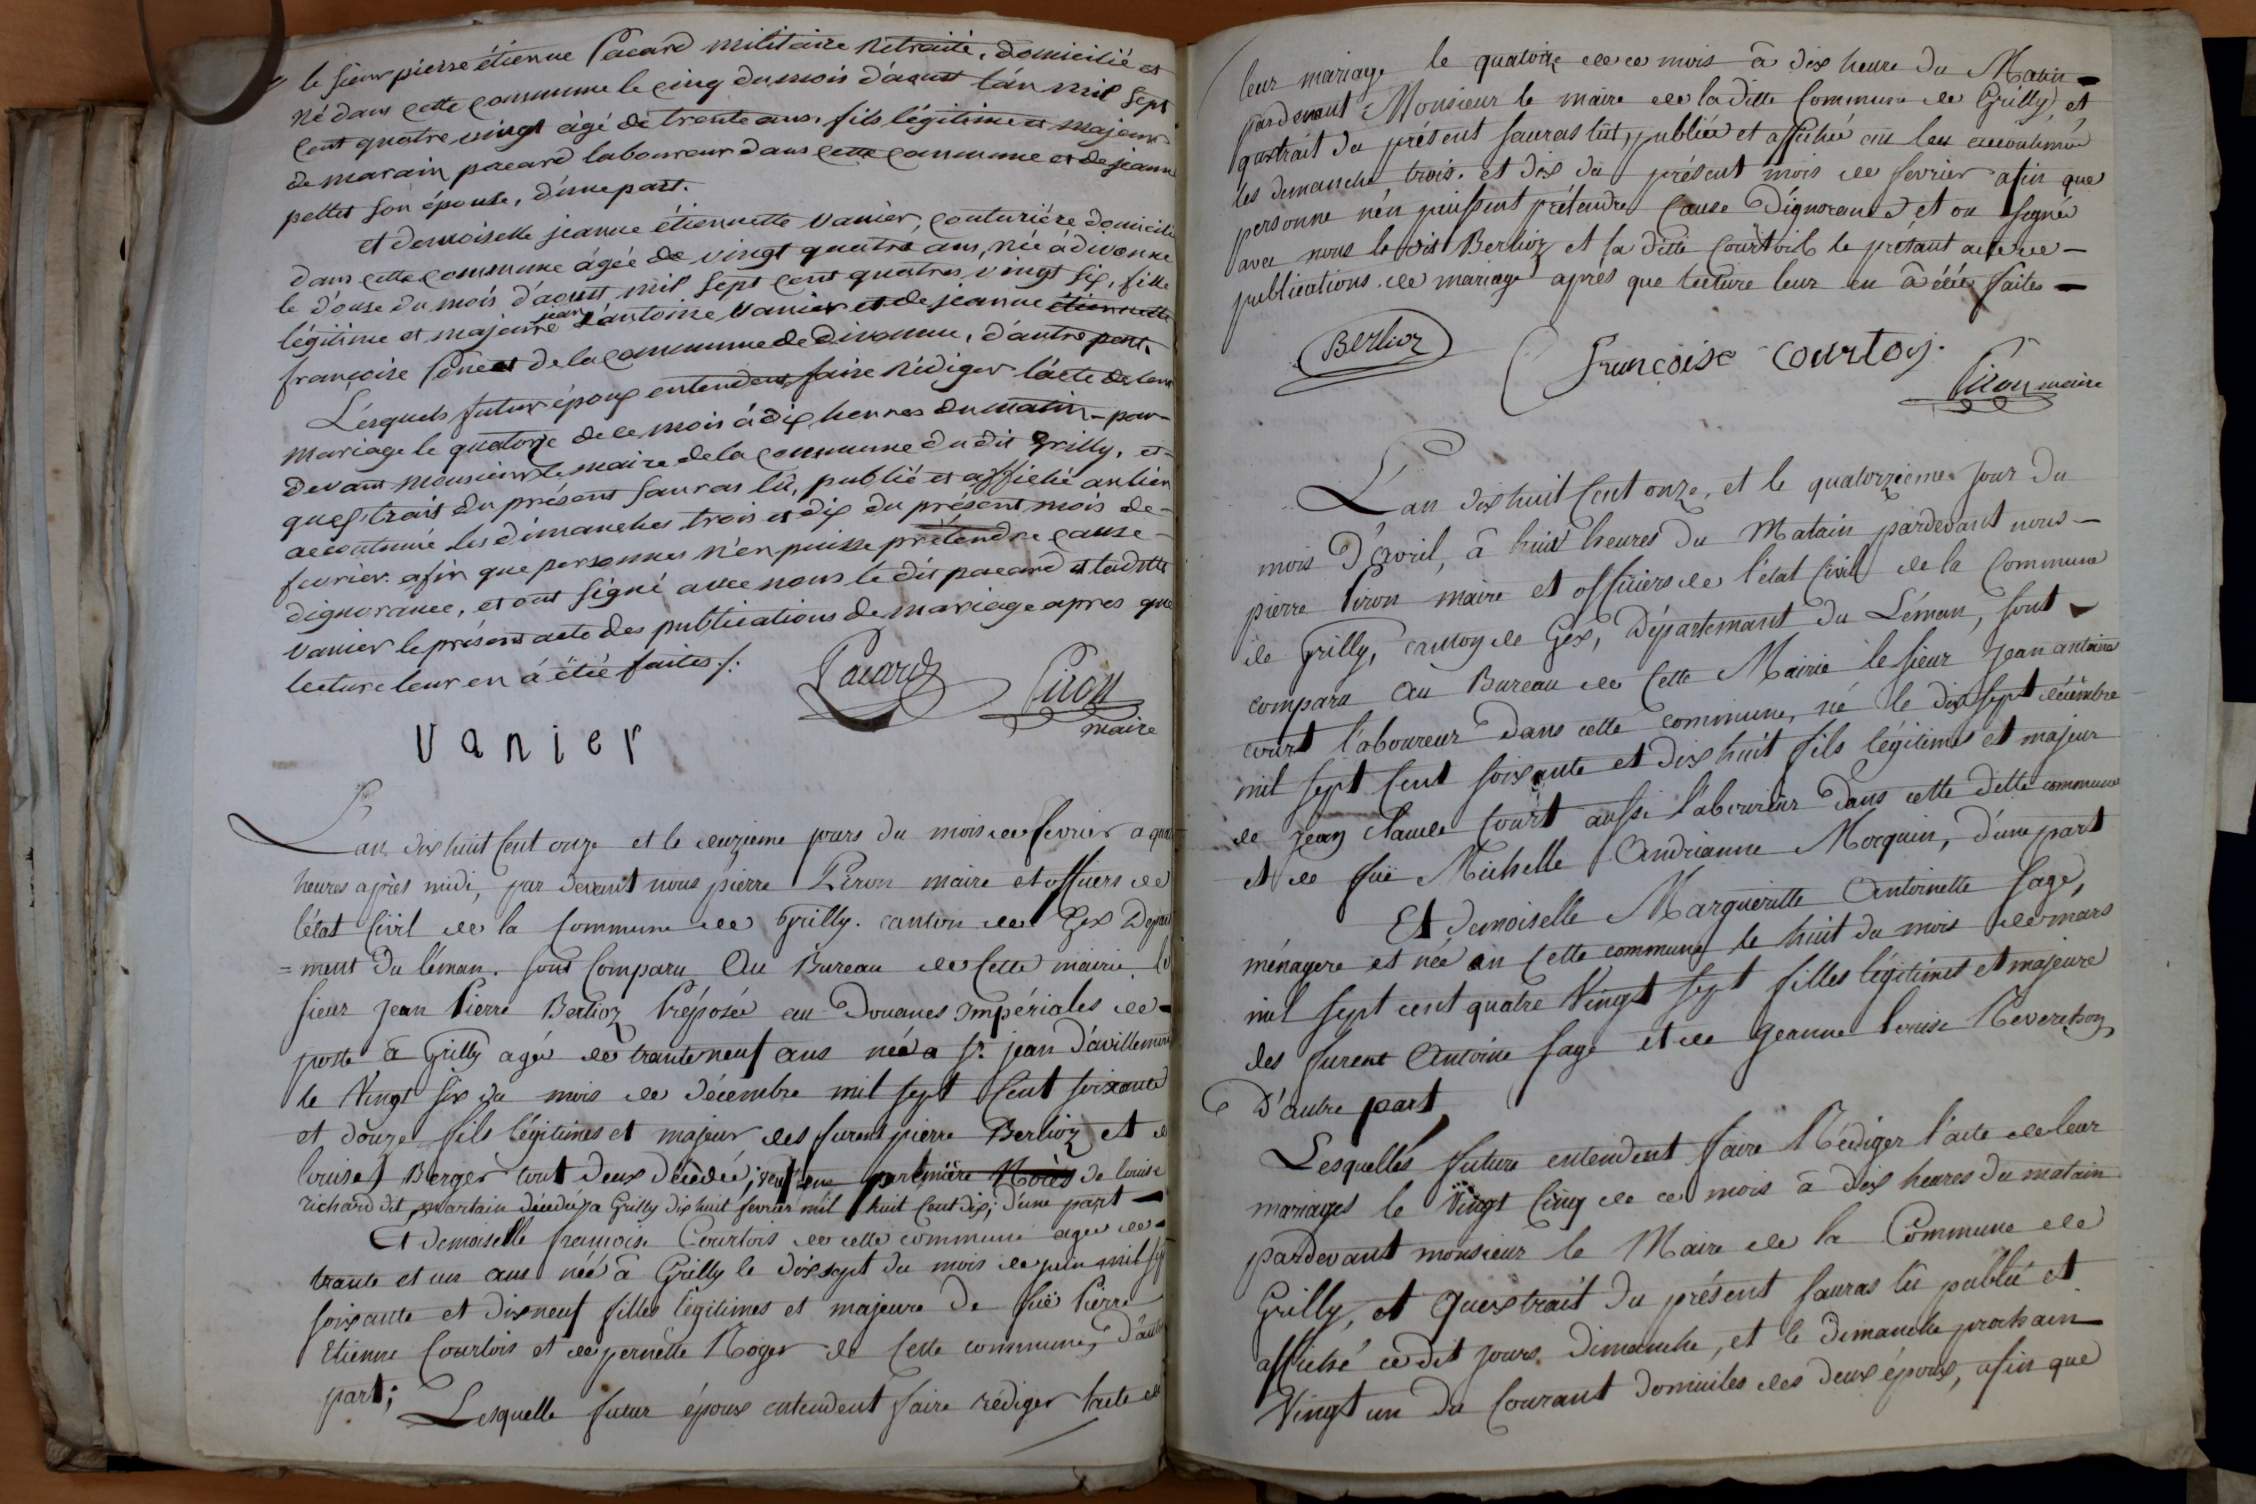 le sieur pierre étienne Pacard militaire Retraité, domicilié et
né dans cette commune le cinq du mois d'aoust l'an mil sept
cent quatre vingt âgé de trente ans, fils légitime et majeur
de marain pacard laboureur dans cette commune et de jeanne
pettet son épouse, d'une part.
et demoiselle jeanne étiennette vanier, couturiére domicilié
dans cette commune âgée de vingt quatre ans, née à divonne
le douse du mois d'aoust mil sept cent quatres vingt six, fille
légitime et majeure jean d'antoine vanier et de jeanne étiennette
françoise de la commune de divonne, d'autre part.
Lésquels futur époux entendent faire Rédiger l'acte de leur
mariage le quatorze de ce mois à dix heures du matin - par-
devant monsieur le maire de la commune du dit Grilly, et-
quextrait du présent sauras lû, publié et affiché au lieu
accoutumé les dimanches trois et dix du présent mois de-
fevrier. afin que personnes n'en puisse prétendre cause-
dignorance, et ont signé avec nous le dit pacard et la ditte
vanier le présent acte des publications de mariage apres que
lecture leur en á étée faites./.
Pacard Piron
maire
vanier
Lan dix huit Cent onze et le deuzieme jours du mois de fevrier a quatre
heures après midi, par devant nous pierre Piron maire et officiers de
l'état Civil de la Commune de Grilly. canton de Gex Depart
=ment Du léman. sont Comparu Au Bureau de Cette mairie le
sieur Jean Pierre Berlioz Préposée au Douanes Impériales de-
poste à Grilly agée de trante neuf ans née a St. jean D'avillemont
le Vingt six du mois de décembre mil sept Cent soixante
et douze fils légitimes et majeur des furent pierre Berlioz et de
louise Berger tout deux décédée; veuf en première Noces de louise
richard dit martain décédéz a Grilly dix huit fevrier mil huit Cent dix; d'une part-
Et demoiselle françoise Courtois de cette commune agée de-
trante et un ans née à Grilly le dix sept du mois de juin mil sept
soixante et dix neuf filles légitimes et majeure de fuë Pierre
Etienne Courtois et de pernette Roger de Cette commune, D'autre
part;
Lesquelle futur époux entendent faire rédiger l'acte de
leur mariage le quatorze de ce mois à dix heure du Matin-
pardevant Monsieur le maire de la ditte Commune de Grilly, et
quextrait du présent sauras lût, publiée et affiché au lieu accoutumée
les dimanche trois. et dix du présent mois de fevrier afin que
personne n'én puissent prétendre Cause D'ignorance et on signée
avec nous le dit Berlioz et la ditte Courtois le présant acte de-
publications de mariage après que lecture leur en à étée faites-
Berlioz
françoise courtois.
Piron maire
Lan dix huit Cent onze, et le quatorzieme Jour du
mois D'avril, à huit heures du Matain pardevant nous-
pierre Piron maire et officiers de l'état Civil de la Commune
de Grilly, canton de Gex, Département du Léman, sont-
comparu au Bureau de Cette Mairie le sieur Jean antoine
court l'aboureur dans cette commune, né le dix sept décembre
mil sept Cent soixante et dix huit fils légitimes et majeur
de Jean Claude Court aussi l'aboureur dans cette ditte commune
et de fuë Michelle Andrianne Morquin, d'une part
Et demoiselle Marguéritte Antoinette sage,
ménagere et née en Cette commune le huit du mois de mars
mil sept cent quatre Vingt sept filles légitimes et majeure
des furent Antoine sage et de Jeanne louise Reverchon,
D'autre part,
Lesquelles future entendent faire Rédiger l'acte de leur
mariages le Vingt Cinq de ce mois à dix heures du matain
pardevant monsieur le Maire de la Commune de
Grilly, et Quextrait du présent sauras lû publié et
affiché cedit jours dimanche, et le dimanche prochain
Vingt un du Courant domiciles des deux époux, afin que